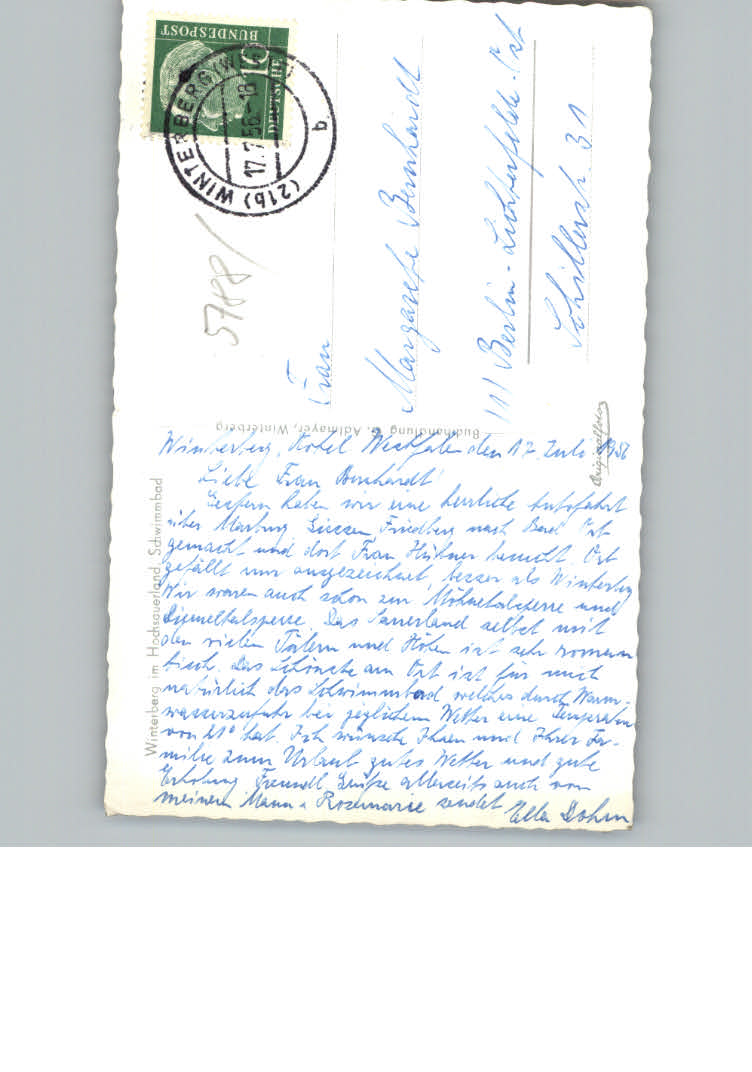 Winterberg, Hotel Westfalen den 17. Juli 1956
Liebe Frau Bernhardt!
Gestern haben wir eine herrliche Autofahrt
über Marburg Giessen, Friedberg nach Bad
gemacht und dort Frau Hübner besucht. Ort
gefällt mir ausgezeichnet, besser als Winterberg
Wir waren auch schon zur Möhnetalsperre und
Diemeltalsperre. Das Sauerland selbst mit
den vielen Tälern und Höhen ist sehr roman-
tisch. Das Schönste am Ort ist für mich
natürlich das Schwimmbad, welches durch Warm-
wasserzufuhr bei jeglichem Wetter eine Temperatur
von 21° hat. Ich wünsche Ihnen und Ihrer Fa-
milie zum Urlaub gutes Wetter und gute
Erholung Freundl Grüße allerseits auch von
meinem Mann u. Rosemarie sendet Ella Dohrn
Winterberg im Hochsauerland, Schwimmbad
Buchhandlung G. Adlmayer, Winterberg
Originalfoto
Frau
Margarete Bernhardt
1/1 Berlin-Lichterfelde-Ost
Schillerstr. 31
5788/
DEUTSCHE
BUNDESPOST
10
(21b) WINTERBERG (WESTF)
17.7.56-18
b